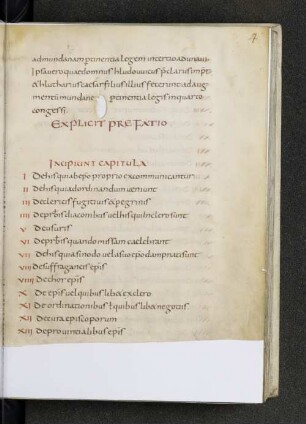 7
admundanam ptinentia legem incertio adunaui
ipsa uero quae domnus hludouuicus pclarus impr
& hlutharius caesar filius illius fecerunt ad aug
mentu mundane ptinentia legis in quarto
congessi
EXPLICIT PREFATIO
INCIPIUNT CAPITULA
I De his qui ab epo proprio excommunicantur
II De his qui ad ordinandum ueniunt
III De clericis fugitiuis & pegrinis
IIII De prbis & diaconibus uel his qui in clero sunt
V De usuris
VI De prbis quando missam caelebrant
VII De his qui a sinodo uel a suo epo dampnati sunt
VIII De suffraganeis epis
VIIII De chor epis
X De epis uel quibuslibet ex clero
XI De ordinationibus t quibuslibet negotiis
XII De cura episcoporum
XIII De prouintialibus epis